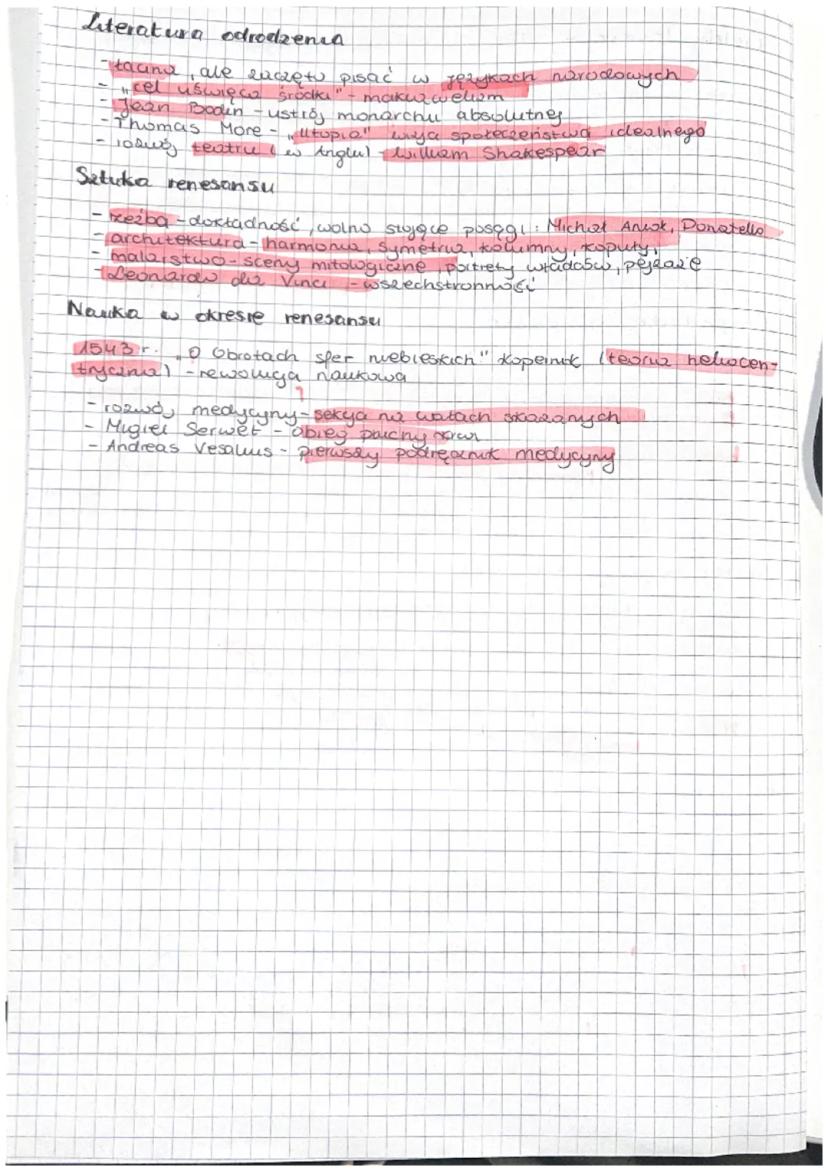 Literatura odrodzenia
- łacina, ale zaczęto pisać w językach narodowych
- "cel uświęca środki" - makiawelizm
- Jean Bodin - ustrój monarchii absolutnej
- Thomas More - "Utopia" wizja społeczeństwa idealnego
- rozwój teatru (w Anglii) - William Shakespear
Sztuka renesansu
- rzeźba - dokładność, wolno stojące posągi: Michał Anioł, Donatello
- architektura - harmonia, symetria, kolumny, kopuły,
- malarstwo - sceny mitologiczne, portrety władców, pejzaże
- Leonardo da Vinci - wszechstronność
Nauka w okresie renesansu
1543 r. "O Obrotach sfer niebieskich" Kopernik (teoria heliocen-
tryczna) - rewolucja naukowa
- rozwój medycyny - sekcja na ciałach skazanych
- Migiel Serwet - obieg płucny krwi
- Andreas Vesalius - pierwszy podręcznik medycyny